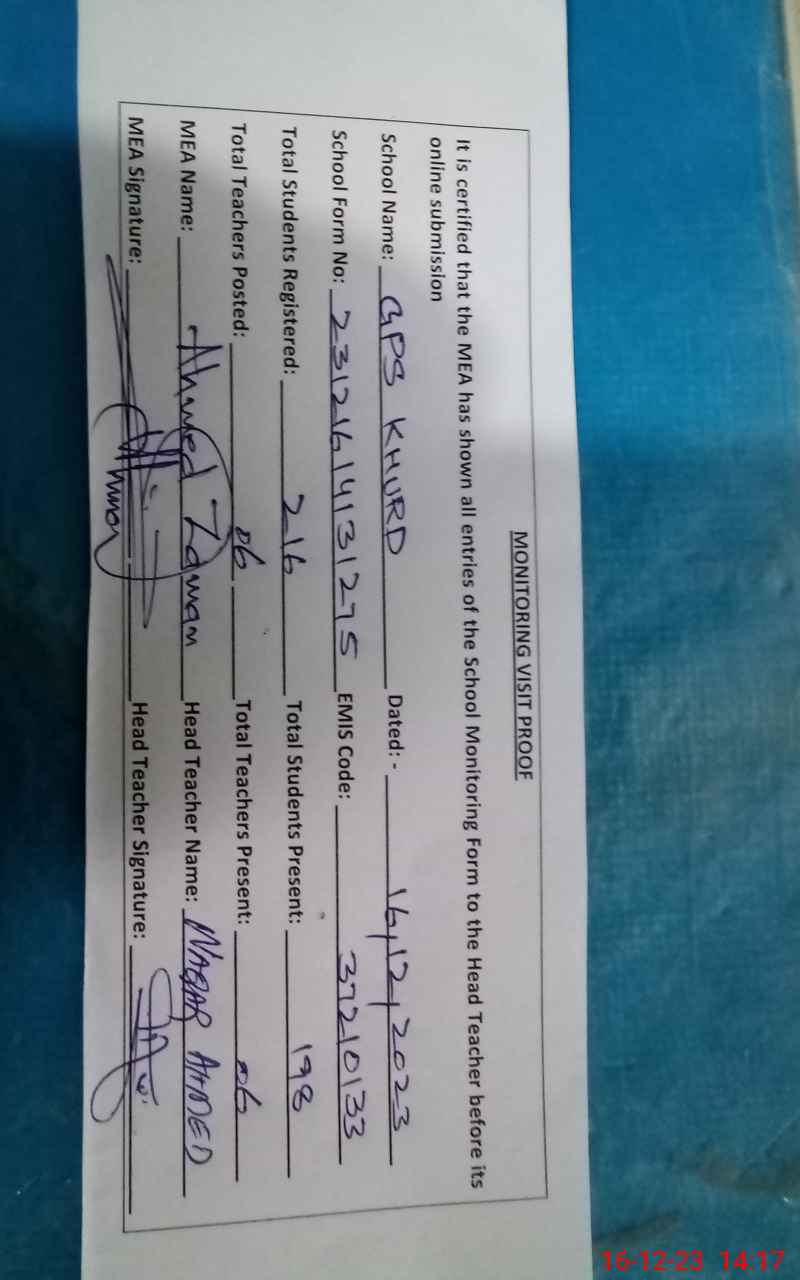 MONITORING VISIT PROOF
It is certified that the MEA has shown all entries of the School Monitoring Form to the Head Teacher before its
online submission
School Name: GPS KHURD Dated: - 16,12,2023
School Form No: 23121614131275 EMIS Code: 37210133
Total Students Registered: 216 Total Students Present: 198
Total Teachers Posted: 06 Total Teachers Present: 06
MEA Name: Ahmed Zaman Head Teacher Name: AHMED
MEA Signature: Head Teacher Signature:
16-12-23 14:17